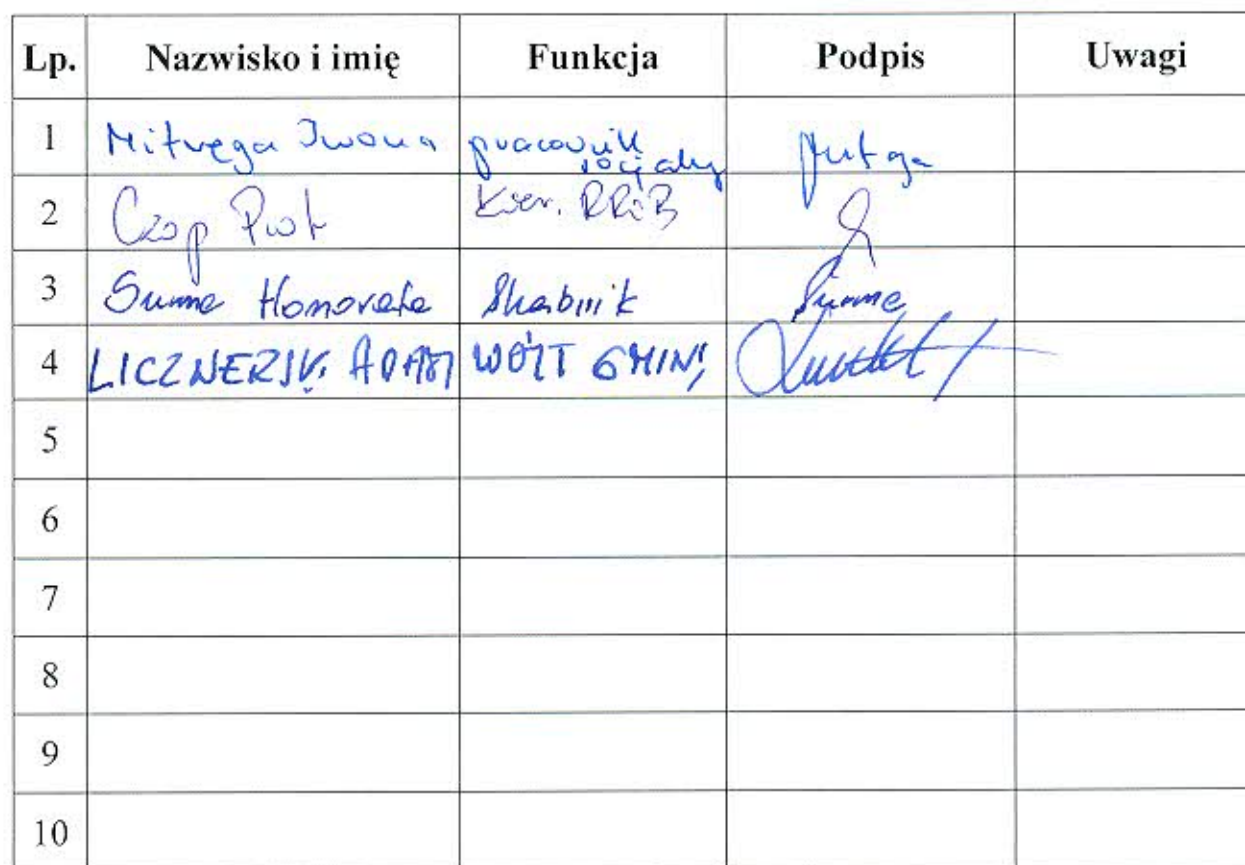 Lp. Nazwisko i imię Funkcja Podpis Uwagi
1 Mitręga Iwona pracownik socjalny
2 Czop Piotr Kier. RRiB
3 Summa Honorata Skarbnik
4 LICZNERSKI ADAM WÓJT GMINY
5
6
7
8
9
10